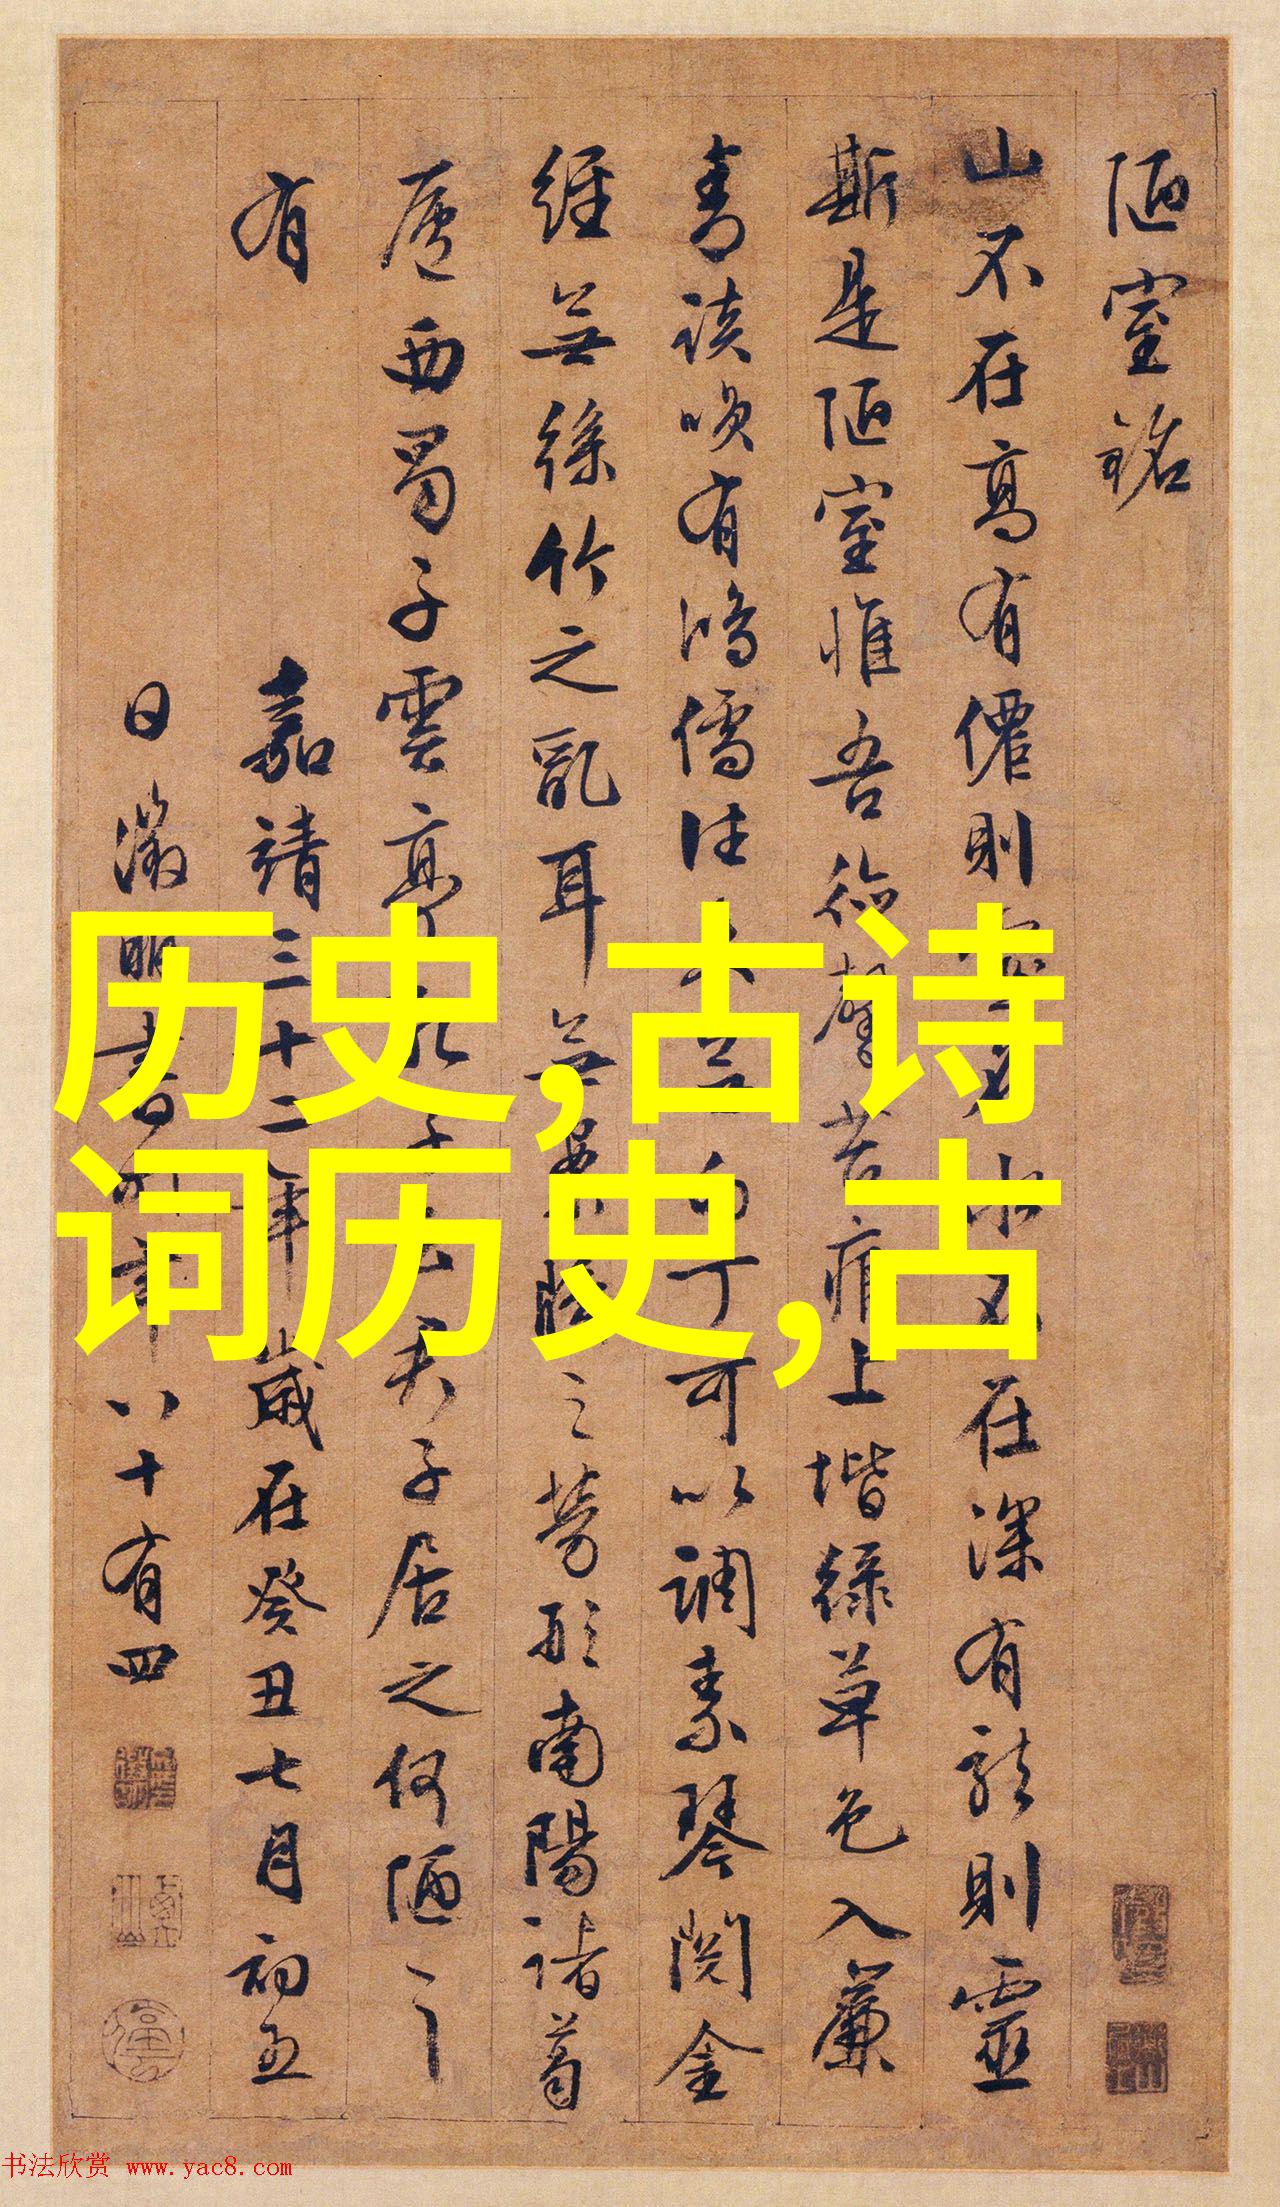 陋室銘
山不在高有僊則名水不在深有龍則靈
斯是陋室惟吾德馨苔痕上堦綠草色入簾
青談咲有鴻儒往來無白丁可以調素琴閱金
經無絲竹之亂耳無案牘之勞形南陽諸葛
廬西蜀子雲亭孔子云君子居之何陋之
有
嘉靖三十二年歲在癸丑七月初五
日徵明書時年八十有四
历史,古诗
词历史,古
书法欣赏 www.yac8.com